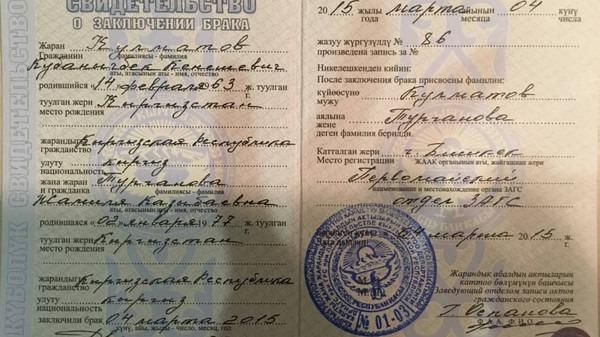 СВИДЕТЕЛЬСТВО
О ЗАКЛЮЧЕНИИ БРАКА
Жаран
Гражданин Кулматов
фамилиясы - фамилия
Кубанычбек Кенешевич
аты, атасынын аты - имя, отчество
родившийся 14 февраля 1963 ж. туулган
г.
туулган жери Кыргызстан
место рождения
жарандыгы Кыргызская Республика
гражданство
улуту кыргыз
национальность
жана жаран Турганова
и гражданка
фамилиясы - фамилия
Жамиля Казыбаевна
аты, атасынын аты - имя, отчество
родившаяся 02 января 1977 ж. туулган
г.
Кыргызстан
место рождения
жарандыгы Кыргызская Республика
гражданство
улуту кыргыз
национальность
заключили брак 04 марта 2015
күнү, айы, жылы - число, месяц, год
2015 жылы марта айынын 04 күнү
года месяца числа
жазуу жүргүзүлдү № 86
произведена запись за №
Никелешкенден кийин:
После заключения брака присвоены фамилии:
күйөөсүнө Кулматов
мужу
аялына Турганова
жене
деген фамилия берилди.
Катталган жери г. Бишкек
Место регистрации
ЖААК органынын аты, жайгашкан жери
Первомайский
наименование и местонахождение органа ЗАГС
отдел ЗАГС
04 марта 2015 ж.
г.
№ 01-09
Жарандык абалдын актыларын
каттоо бөлүмүнүн башчысы
Заведующий отделом записи актов
гражданского состояния
Г. Оспанова
СВИДЕТЕЛЬСТВО